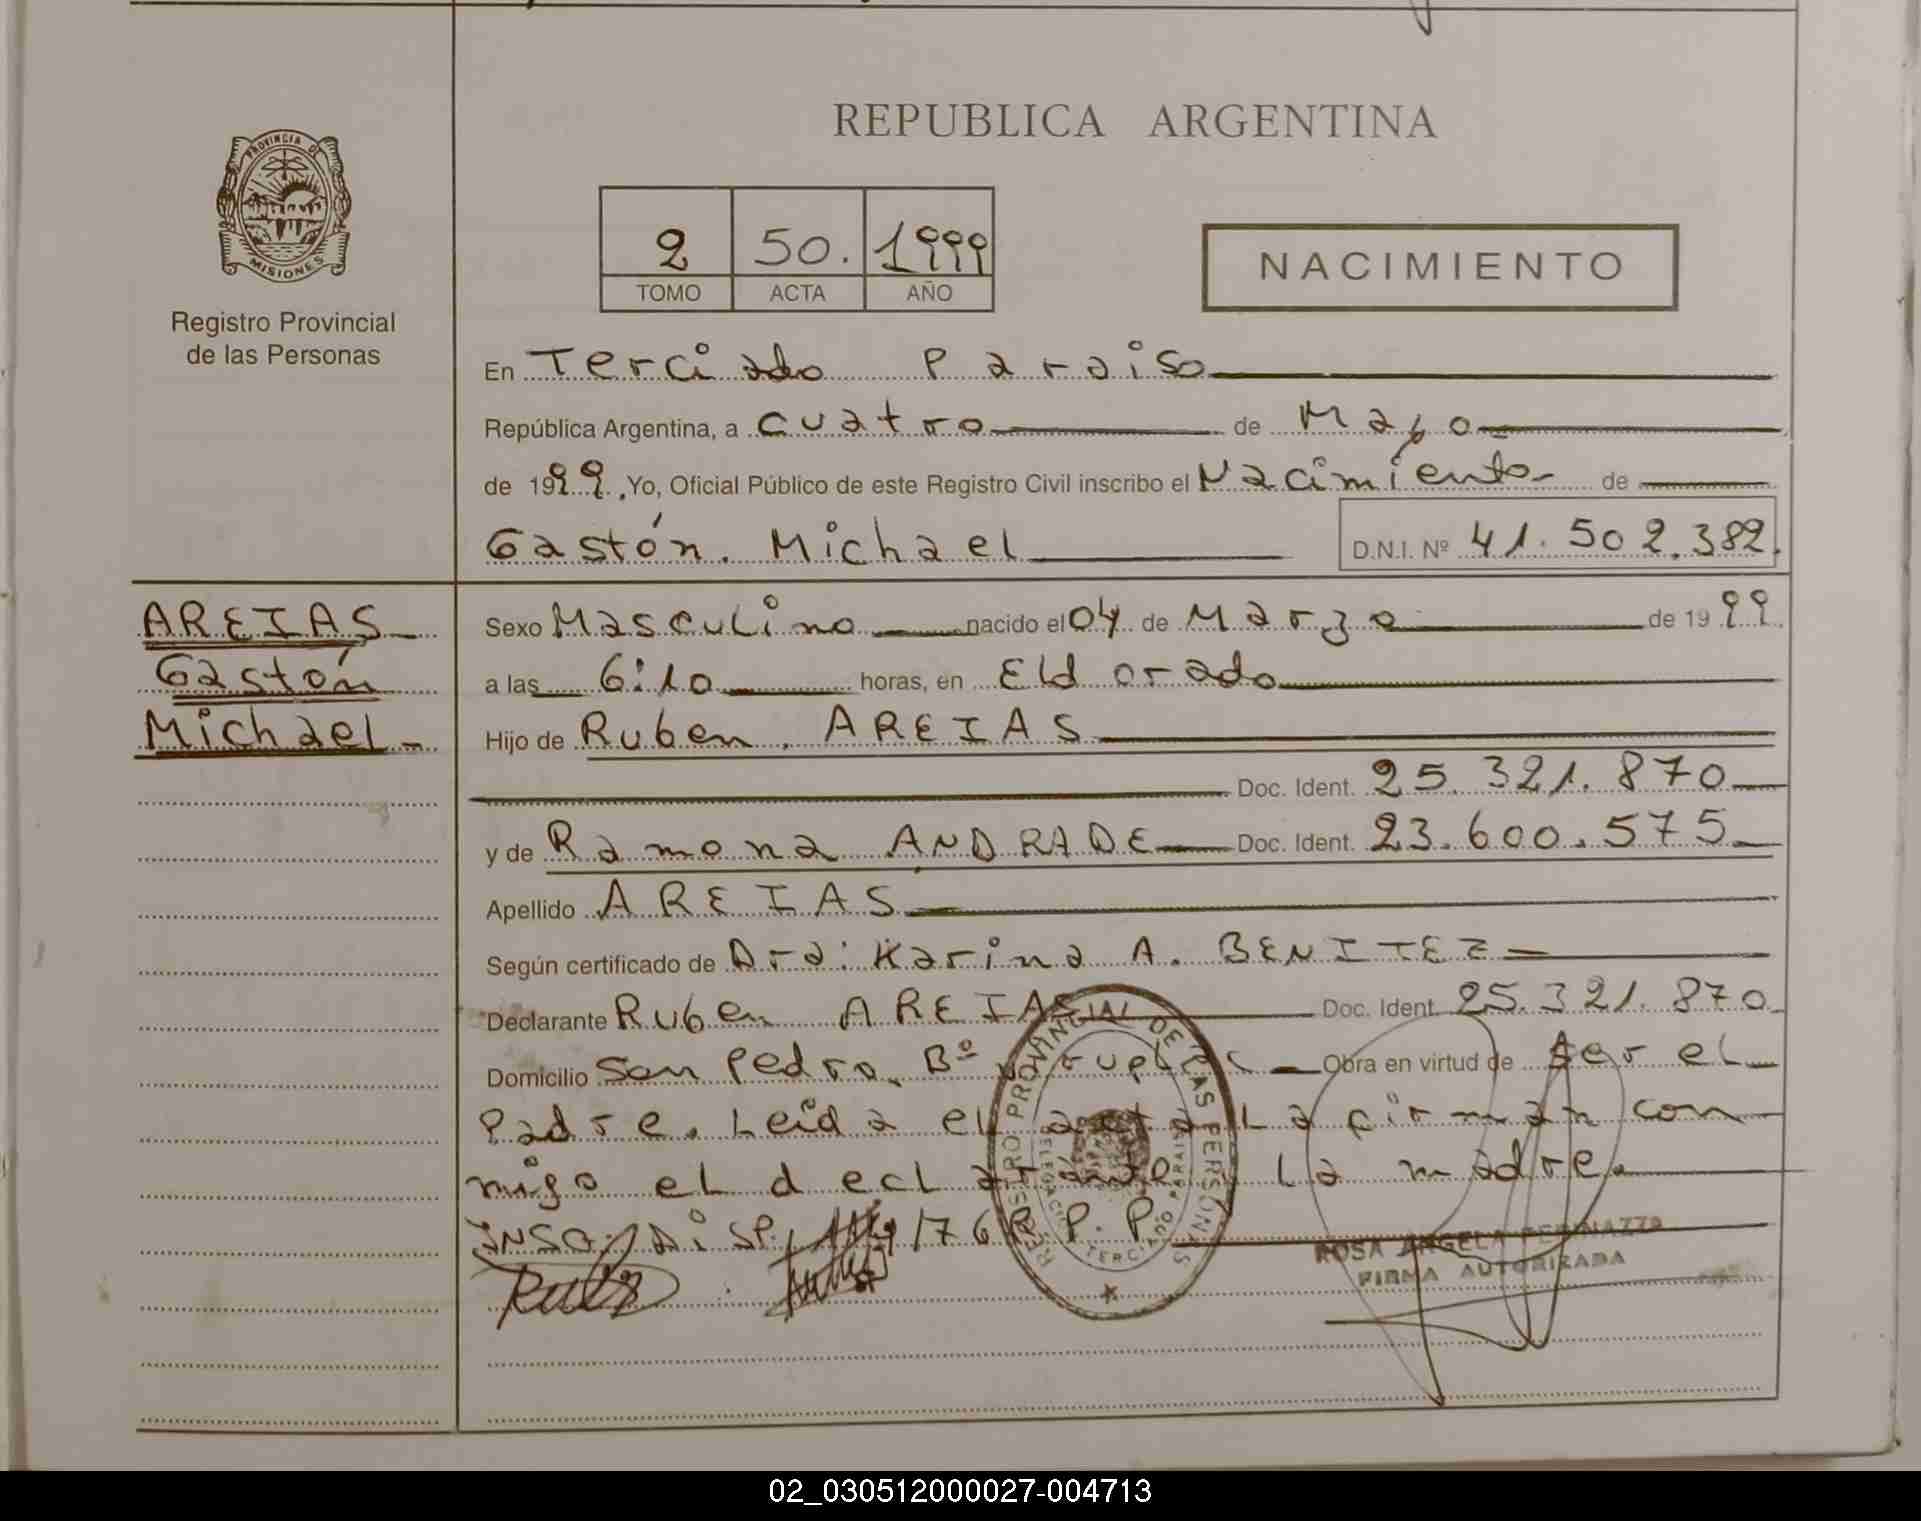 REPUBLICA ARGENTINA
PROVINCIA DE
MISIONES
Registro Provincial
de las Personas
2 50. 1999
TOMO ACTA AÑO
NACIMIENTO
En Terciado Paraiso
República Argentina, a cuatro de Mayo
de 1999. Yo, Oficial Público de este Registro Civil inscribo el Nacimiento de
Gastón. Michael D.N.I. Nº 41.502.382.
AREIAS
Gastón
Michael
Sexo Masculino nacido el 04 de Marzo de 1999
a las 6:10 horas, en Eldorado
Hijo de Ruben. AREIAS
Doc. Ident. 25.321.870
y de Ramona ANDRADE Doc. Ident. 23.600.575
Apellido AREIAS
Según certificado de Dra: Karina A. BENITEZ
Declarante Ruben AREIAS Doc. Ident. 25.321.870
Domicilio San Pedro. Bº Obra en virtud de Ser el
Padre. Leida el acta La firman con
migo el declarante y La madre.
DISP. /76 R.P.P.
REGISTRO PROVINCIAL DE LAS PERSONAS
DELEGACION TERCIADO PARAISO
ROSA ANGELA
FIRMA AUTORIZADA
02_030512000027-004713